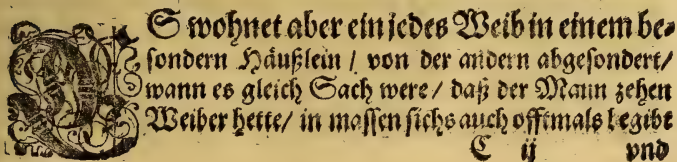 ES wohnet aber ein jedes Weib in einem be⸗
sondern Häußlein / von der andern abgesondert/
wann es gleich Sach were / daß der Mann zehen
Weiber hette/ in massen sichs auch offtmals begibt
C ij vnd